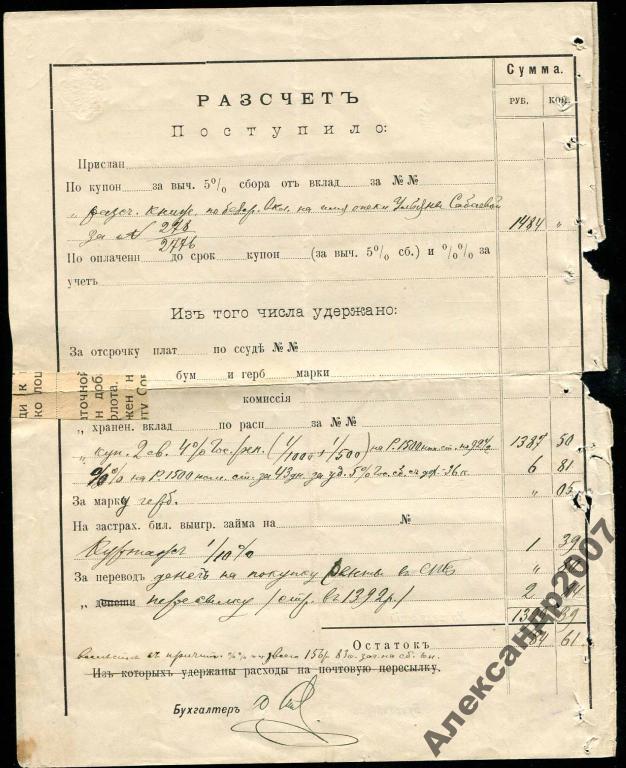 Сумма.
РУБ. КОП.
РАЗСЧЕТЪ
Поступило:
Прислан
По купон за выч. 5% сбора отъ вклад за №№
" разсч. книж. по безср. вкл. на имя опеки Ульяны Сабаевой
за № 278/2776 1484 "
По оплаченн до срок купон (за выч. 5% сб.) и %% за
учетъ
Изъ того числа удержано:
За отсрочку плат по ссудѣ №№
бум и герб марки
комиссія
" хранен. вклад по расп за №
" куп. 2 св. 4% Гос. рен. (1/1000 + 1/500) на Р. 1500 ном. ст. по 92½ 1387 50
%% на Р. 1500 ном. ст. за 43 дн. за уд. 5% Гос. сб. 6 81
За марку герб. " 05
На застрах. бил. выигр. займа на №
Куртажъ 1/10% 1 39
За переводъ денегъ на покупку ренты въ СПБ "
" депеши пересылку (стр. въ 1392 р.) 2
Остатокъ 61
Изъ которыхъ удержаны расходы на почтовую пересылку.
Бухгалтеръ
Александр2007